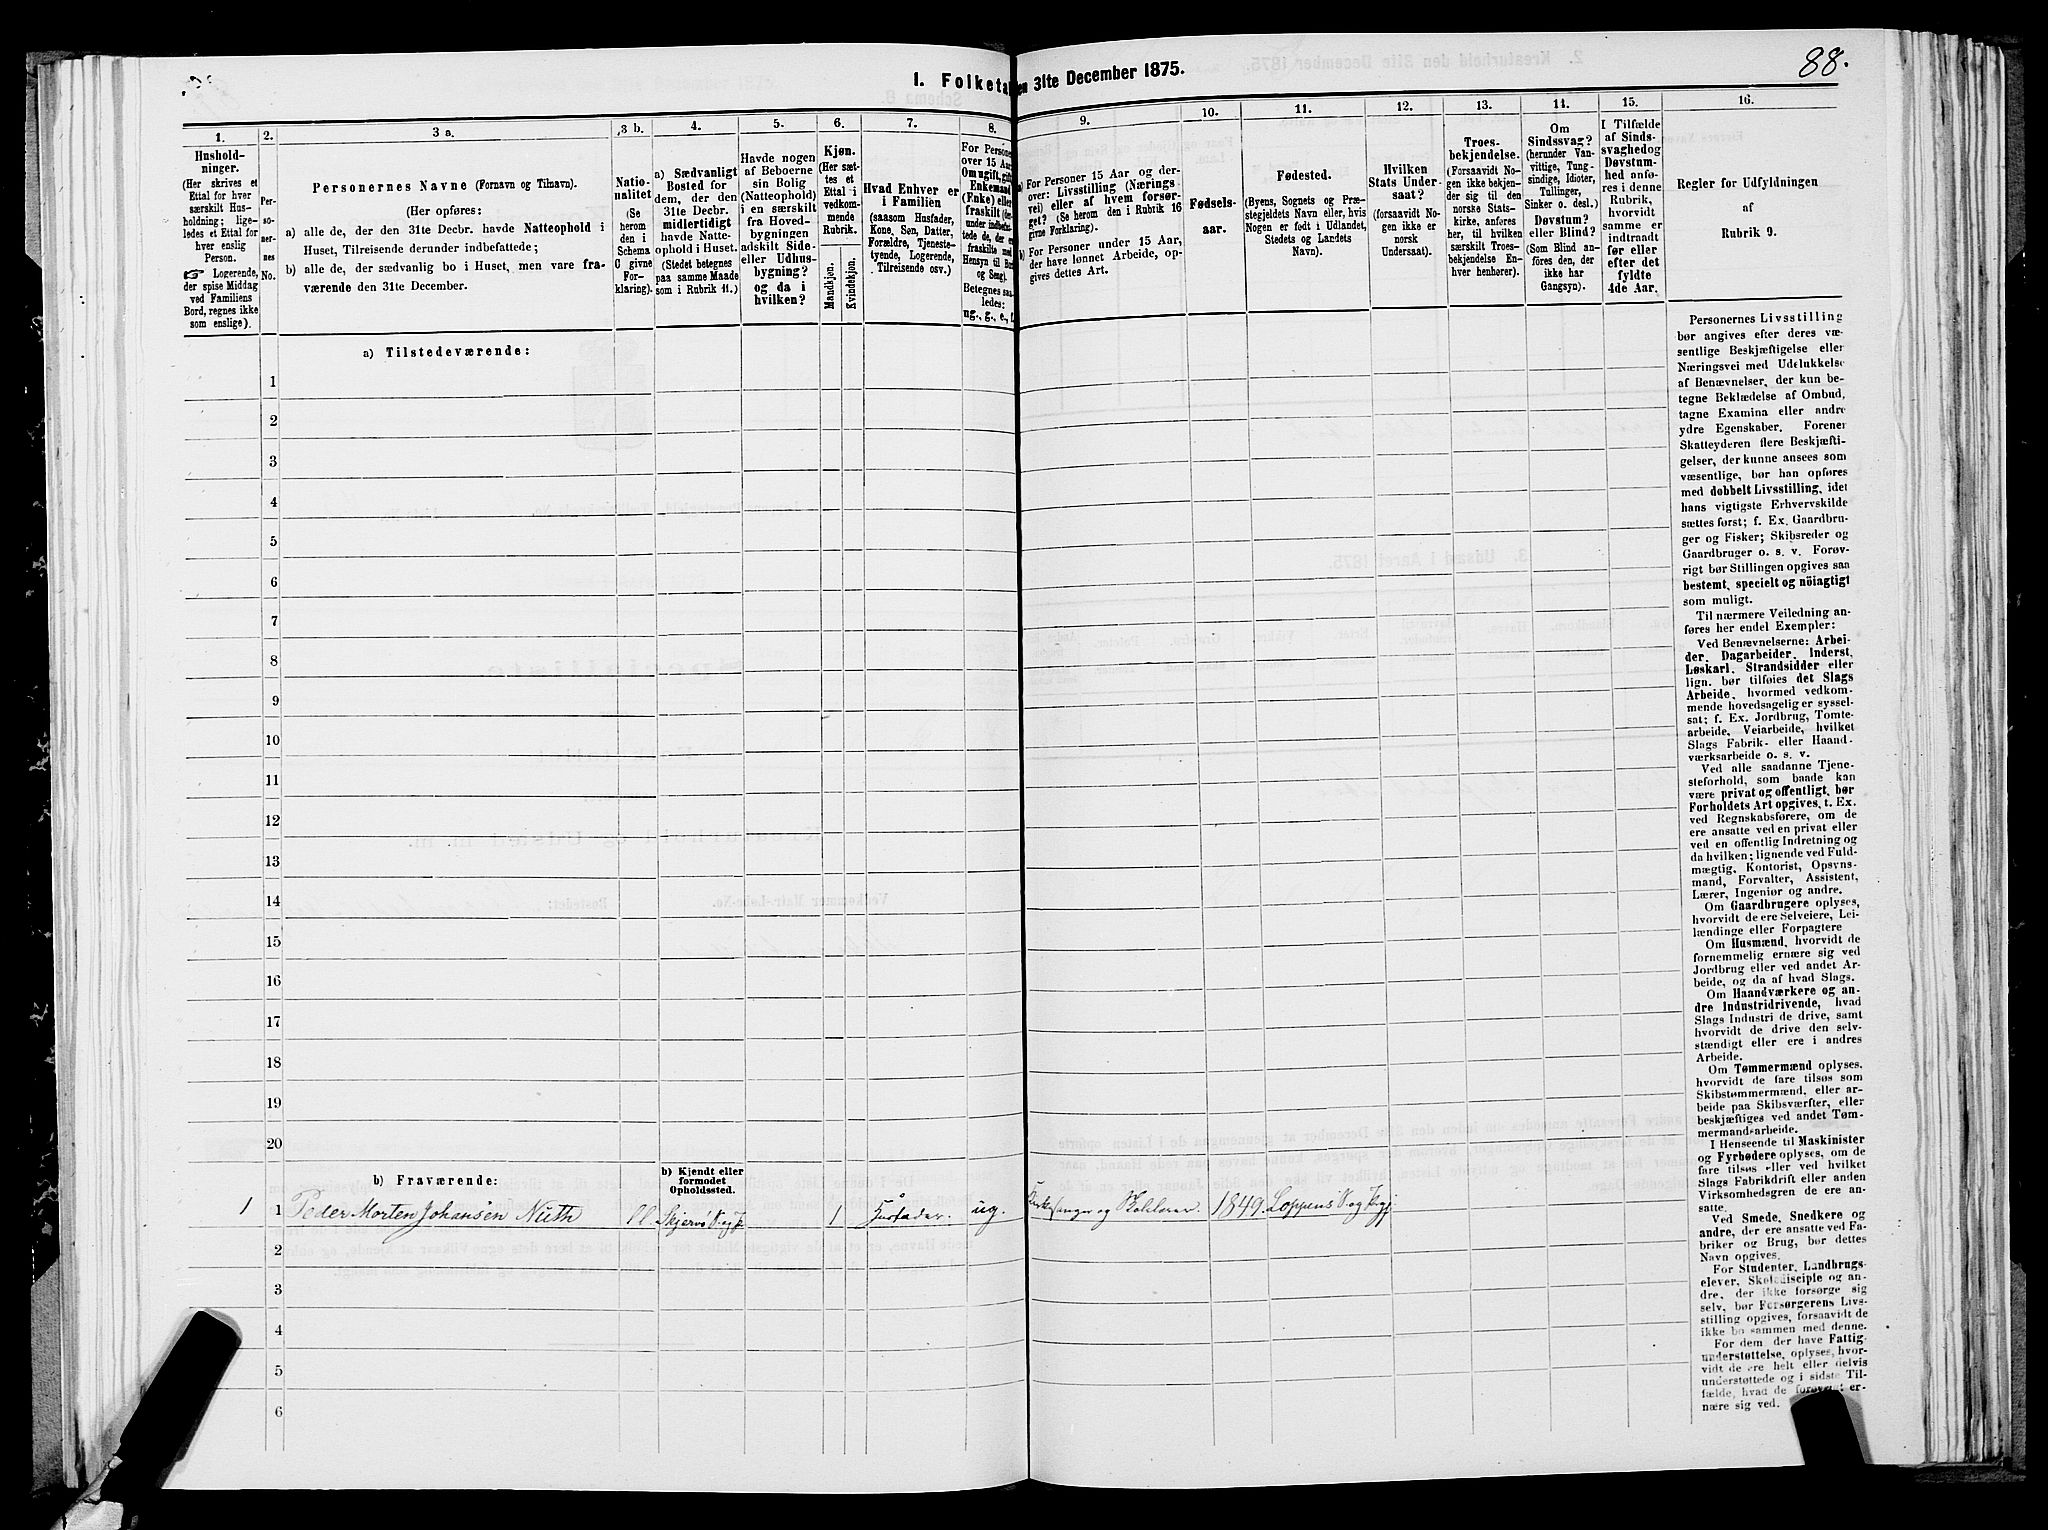 88.
I. Folketal
en 31te December 1875.
1.
Hushold-
ninger.
(Her skrives et
Ettal for hver
særskilt Hus-
holdning; lige-
ledes et Ettal for
hver enslig
Person.
☞ Logerende,
der spise Middag
ved Familiens
Bord, regnes ikke
som enslige).
2.
Per-
so-
ner-
nes
No.
3 a.
Personernes Navne (Fornavn og Tilnavn).
(Her opføres:
a) alle de, der den 31te Decbr. havde Natteophold i
Huset, Tilreisende derunder indbefattede;
b) alle de, der sædvanlig bo i Huset, men vare fra-
værende den 31te December.
3 b.
Natio-
nalitet
(Se
herom
den i
Schema
C givne
For-
klaring).
4.
a) Sædvanligt
Bosted for
dem, der den
31te Decbr.
midlertidigt
havde Natte-
ophold i Huset.
(Stedet betegnes
paa samme Maade
som i Rubrik 11.)
5.
Havde nogen
af Beboerne
sin Bolig
(Natteophold)
i en særskilt
fra Hoved-
bygningen
adskilt Side-
eller Udhus-
bygning?
og da i
hvilken?
6.
Kjøn.
(Her sæt-
tes et
Ettal i
vedkom-
mende
Rubrik.
Mandkjøn.
Kvindekjøn.
7.
Hvad Enhver er
i Familien
(saasom Husfader,
Kone, Søn, Datter,
Forældre, Tjeneste-
tyende, Logerende,
Tilreisende osv.)
8.
For Personer
over 15 Aar:
Om ugift, gift,
Enkemand
(Enke) eller
fraskilt (der-
under indbefat-
tede de, der ere
fraskilte med
Hensyn til Bord
og Seng).
Betegnes saa-
ledes:
ug., g., e., f.
9.
a) For Personer 15 Aar og der-
over: Livsstilling (Nærings-
vei) eller af hvem forsør-
get? (Se herom den i Rubrik 16
givne Forklaring).
b) For Personer under 15 Aar,
der have lønnet Arbeide, op-
gives dettes Art.
10.
Fødsels-
aar.
11.
Fødested.
(Byens, Sognets og Præ-
stegjeldets Navn eller, hvis
Nogen er født i Udlandet,
Stedets og Landets
Navn).
12.
Hvilken
Stats Under-
saat?
(forsaavidt No-
gen ikke er
norsk
Undersaat).
13.
Troes-
bekjendelse.
(Forsaavidt No-
gen ikke bekjen-
der sig til den
norske Stats-
kirke, anføres
her, til hvilken
særskilt Troes-
bekjendelse En-
hver henhører).
14.
Om
Sindssvag?
(herunder Van-
vittige, Tung-
sindige, Idioter,
Tullinger,
Sinker o. desl.)
Døvstum?
eller Blind?
(Som Blind an-
føres den, der
ikke har
Gangsyn).
15.
I Tilfælde
af Sinds-
svaghed og
Døvstum-
hed anfø-
res i denne
Rubrik,
hvorvidt
samme er
indtraadt
før eller
efter det
fyldte
4de Aar.
16.
Regler for Udfyldningen
af
Rubrik 9.
Personernes Livsstilling
bør angives efter deres væ-
sentlige Beskjæftigelse eller
Næringsvei med Udelukkelse
af Benævnelser, der kun be-
tegne Beklædelse af Ombud,
tagne Examina eller andre
ydre Egenskaber. Forener
Skatteyderen flere Beskjæfti-
gelser, der kunne ansees som
væsentlige, bør han opføres
med dobbelt Livsstilling, idet
hans vigtigste Erhvervskilde
sættes først; f. Ex. Gaardbru-
ger og Fisker; Skibsreder og
Gaardbruger o. s. v. Forøv-
rigt bør Stillingen opgives saa
bestemt, specielt og nöiagtigt
som muligt.
Til nærmere Veiledning an-
føres her endel Exempler:
Ved Benævnelserne: Arbei-
der, Dagarbeider, Inderst,
Løskarl, Strandsidder eller
lign. bør tilføies det Slags
Arbeide, hvormed vedkom-
mende hovedsagelig er syssel-
sat; f. Ex. Jordbrug, Tomte-
arbeide, Veiarbeide, hvilket
Slags Fabrik- eller Haand-
værksarbeide o. s. v.
Ved alle saadanne Tjene-
steforhold, som baade kan
være privat og offentligt, bør
Forholdets Art opgives, t. Ex.
ved Regnskabsførere, om de
ere ansatte ved en privat eller
ved en offentlig Indretning og
da hvilken; lignende ved Fuld-
mægtig, Kontorist, Opsyns-
mand, Forvalter, Assistent,
Lærer, Ingeniør og andre.
Om Gaardbrugere oplyses,
hvorvidt de ere Selveiere, Lei-
lændinge eller Forpagtere
Om Husmænd, hvorvidt de
fornemmelig ernære sig ved
Jordbrug eller ved andet Ar-
beide, og da af hvad Slags.
Om Haandværkere og an-
dre Industridrivende, hvad
Slags Industri de drive, samt
hvorvidt de drive den selv-
stændigt eller ere i andres
Arbeide.
Om Tømmermænd oplyses,
hvorvidt de fare tilsøs som
Skibstømmermænd, eller ar-
beide paa Skibsværfter, eller
beskjæftiges ved andet Tøm-
mermandsarbeide.
I Henseende til Maskinister
og Fyrbødere oplyses, om de
fare tilsøs eller ved hvilket
Slags Fabrikdrift eller anden
Virksomhedsgren de ere an-
satte.
Ved Smede, Snedkere og
andre, der ere ansatte ved Fa-
briker og Brug, bør dettes
Navn opgives.
For Studenter, Landbrugs-
elever, Skoledisciple og an-
dre, der ikke forsørge sig
selv, bør Forsørgerens Livs-
stilling opgives, forsaavidt de
ikke bo sammen med denne.
For dem, der have Fattig-
understøttelse, oplyses, hvor-
vidt de ere helt eller delvis
understøttede og i sidste Til-
fælde, hvad de forøvrigt er-
nære sig ved.
a) Tilstedeværende:
1
2
3
4
5
6
7
8
9
10
11
12
13
14
15
16
17
18
19
20
b) Fraværende:
b) Kjendt eller
formodet
Opholdssted.
1 1 Peder Morten Johansen Nuth Skjervö S. og P. 1 Husfader. ug. Kirkesanger og Skolelærer. 1849. Loppens S. og Prgj
2
3
4
5
6